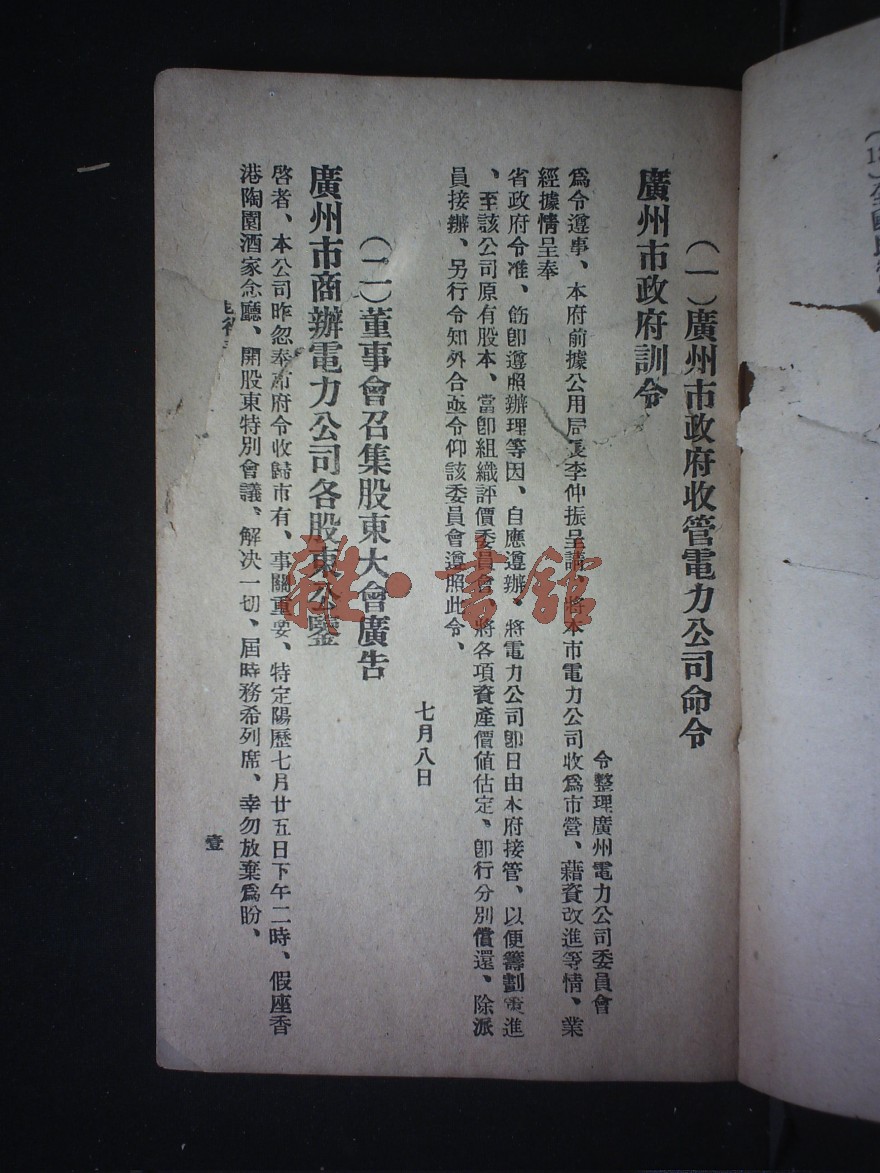 (一)廣州市政府收管電力公司命令
廣州市政府訓令
令整理廣州電力公司委員會
爲令遵事、本府前據公用局長李仲振呈請、將本市電力公司收爲市營、藉資改進等情、業
經據情呈奉
省政府令准、飭卽遵照辦理等因、自應遵辦、將電力公司卽日由本府接管、以便籌劃進
、至該公司原有股本、當卽組織評價委員會、將各項資產價値估定、卽行分別償還、除派
員接辦、另行令知外合亟令仰該委員會遵照此令、
七月八日
(二)董事會召集股東大會廣告
廣州市商辦電力公司各股東公鑒
啓者、本公司昨忽奉市府令收歸市有、事關重要、特定陽歷七月廿五日下午二時、假座香
港陶園酒家念廳、開股東特別會議、解决一切、屆時務希列席、幸勿放棄爲盼、
壹
雜·書館